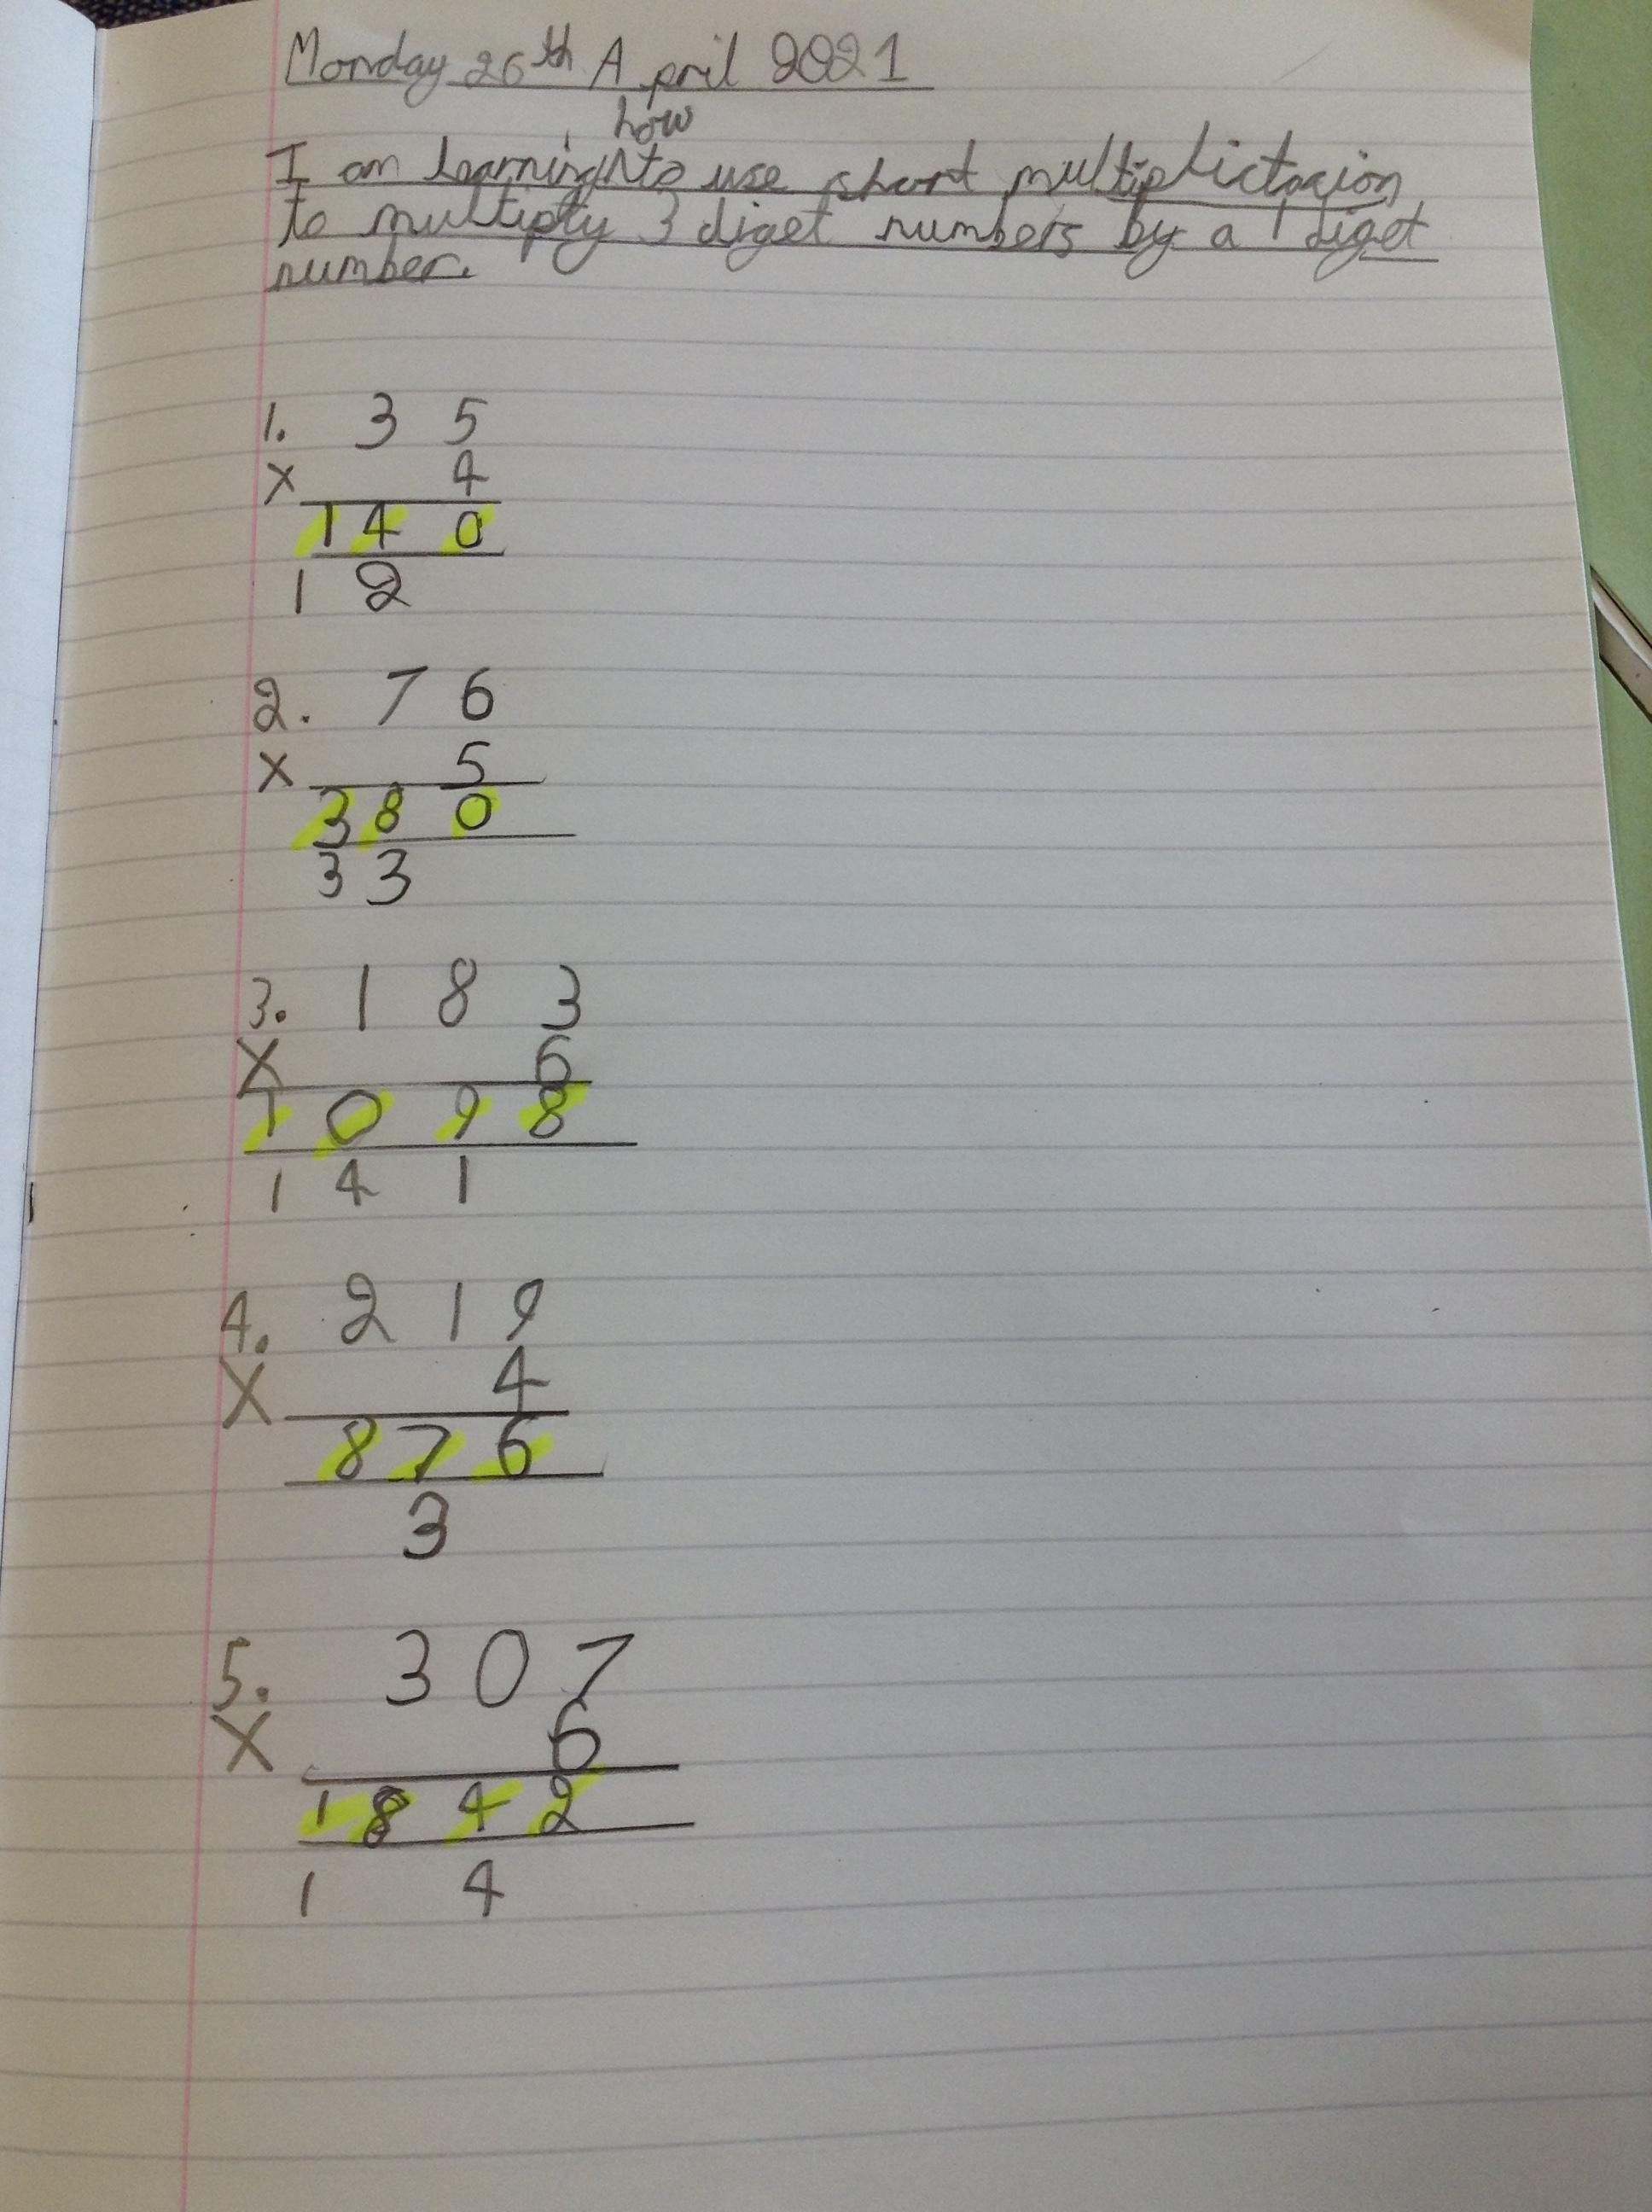 Monday 26th April 2021
how
I am learning to use short multiplictacion
to multiply 3 diget numbers by a 1 diget
number.
1. 3 5
x 4
1 4 0
1 2
2. 7 6
x 5
3 8 0
3 3
3. 1 8 3
x 6
1 0 9 8
1 4 1
4. 2 1 9
x 4
8 7 6
3
5. 3 0 7
x 6
1 8 4 2
1 4